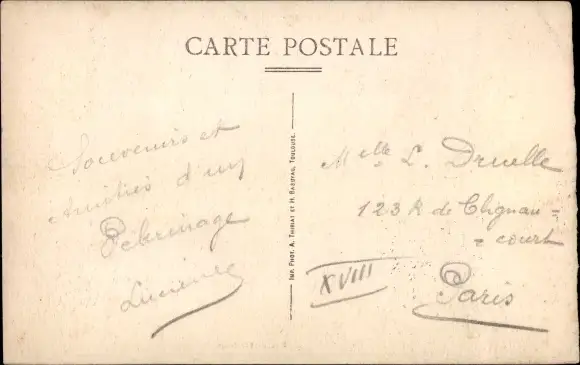 CARTE POSTALE
Souvenirs et
Amitiés d'un
Pèlerinage
Lucienne
IMP. PHOT. A. THIRIAT ET H. BASUYAU, TOULOUSE.
Melle L. Druelle
123 R de Clignan-
-court
XVIII
Paris